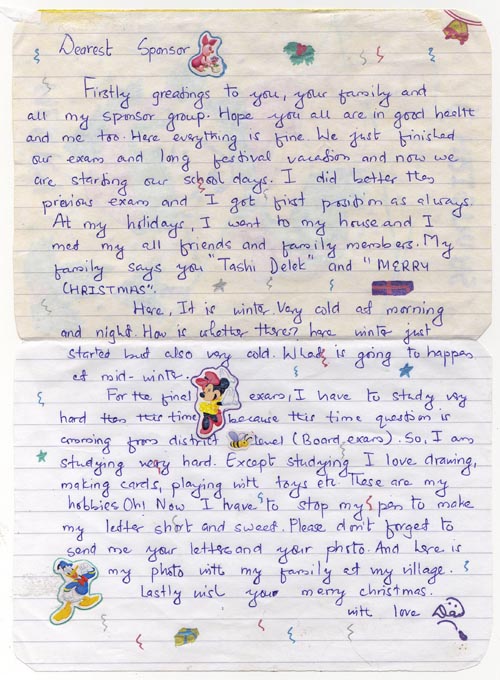 Dearest Sponsor
Firstly greatings to you, your family and
all my sponsor group. Hope you all are in good healtt
and me too. Here everything is fine. We just finished
our exam and long festival vacation and now we
are starting our school days. I did better then
previous exam and I got first position as always.
At my holidays, I want to my house and I
met my all friends and family members. My
family says you "Tashi Delek" and "MERRY
CHRISTMAS".
Here, It is winter. Very cold at morning
and night. How is whetter there? here winter just
started but also very cold. What is going to happen
at mid-winter.
For the final exams, I have to study very
hard then this time because this time question is
comming from district level (Board exam). So, I am
studying very hard. Except studying I love drawing,
making cards, playing witt toys etc. These are my
hobbies Oh! Now I have to stop my pen to make
my letter short and sweet. Please don't forget to
send me your letter and your photo. And here is
my photo witt my family at my village.
Lastly wish you merry christmas.
witt love